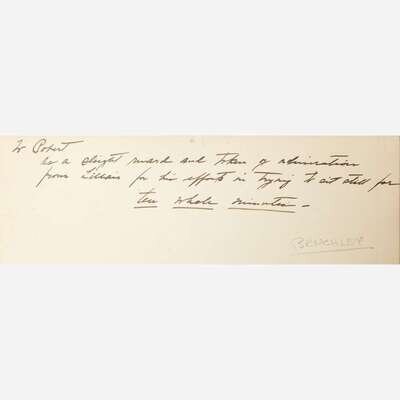 To Robert
as a slight reward and token of admiration
from Lillian for his efforts in trying to sit still for
ten whole minutes —
BENCHLEY